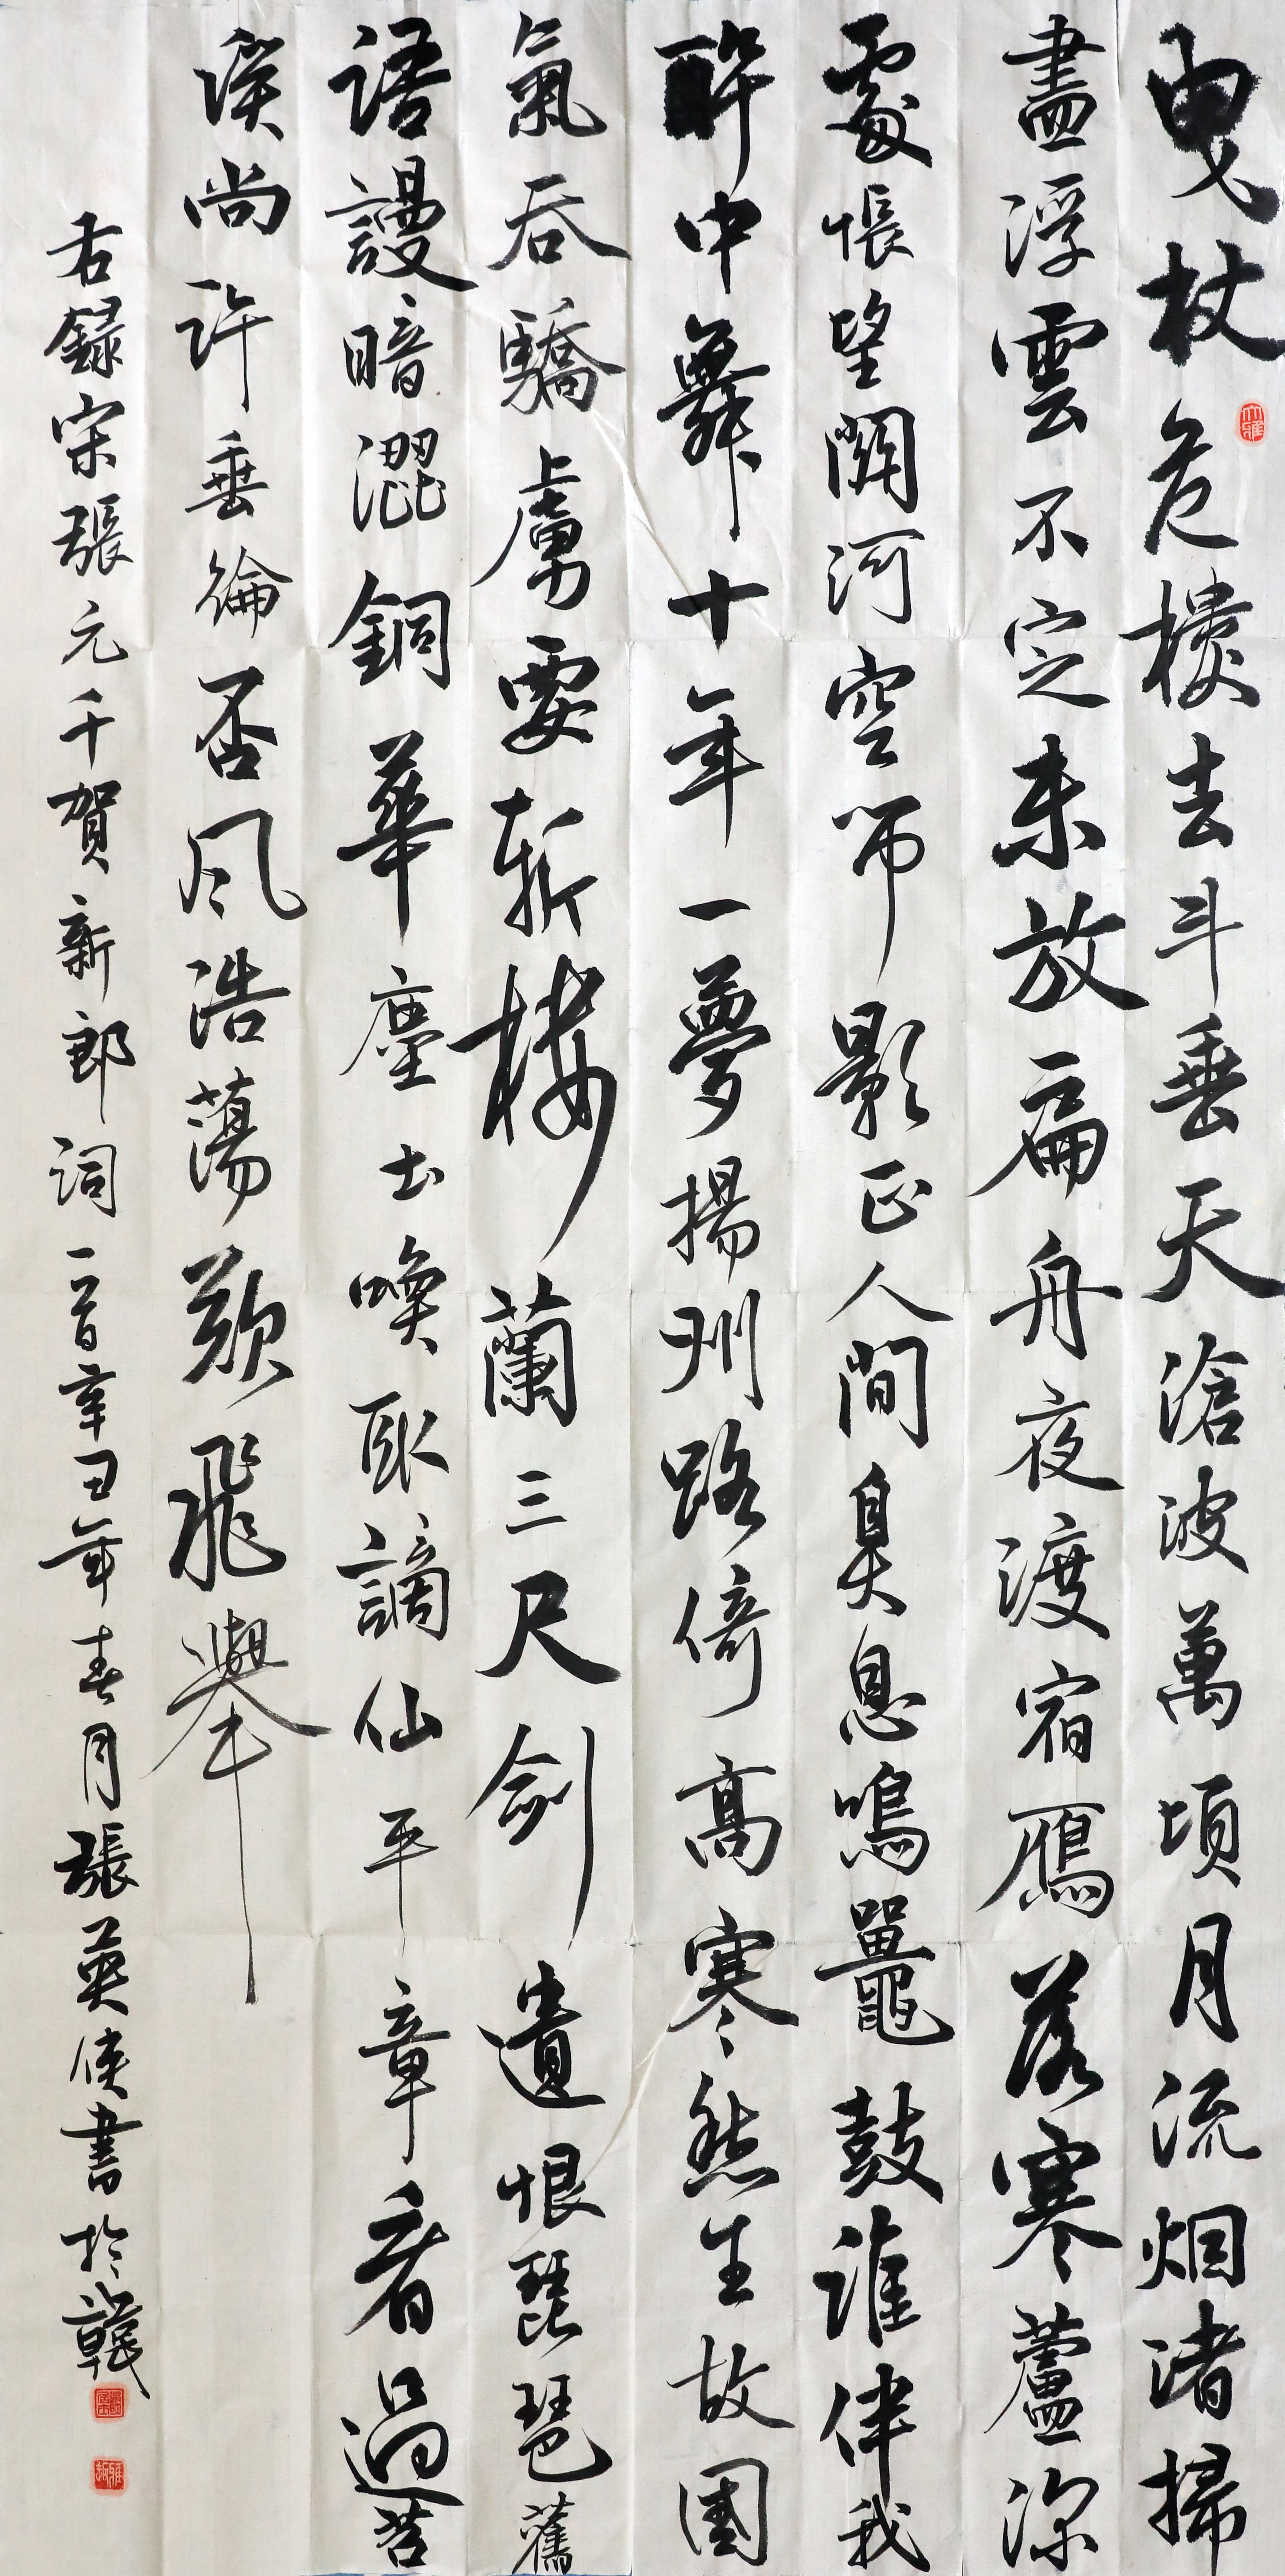 曳杖危樓去斗垂天滄波萬頃月流烟渚掃
盡浮雲不定未放扁舟夜渡宿鴈落寒蘆深
處悵望關河空弔影正人間鼻息鳴鼉鼓誰伴我
醉中舞十年一夢揚州路倚高寒愁生故國
氣吞驕虜要斬樓蘭三尺劍遺恨琵琶舊
語謾暗澀銅華塵土喚取謫仙平章看過苕
溪尚許垂綸否風浩蕩欲飛舉
右錄宋張元千賀新郎詞一首辛丑年春月張英俠書於